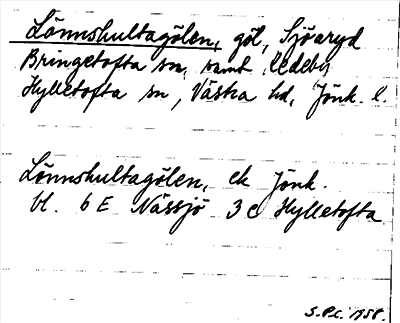 Lönnshultagölen, göl, Sjöaryd
Bringetofta sn, samt Ledeby
Hylletofta sn, Västra hd, Jönk. l.
Lönnshultagölen, ek Jönk.
bl. 6 E Nässjö 3 c Hylletofta
S.P.C. 1958.